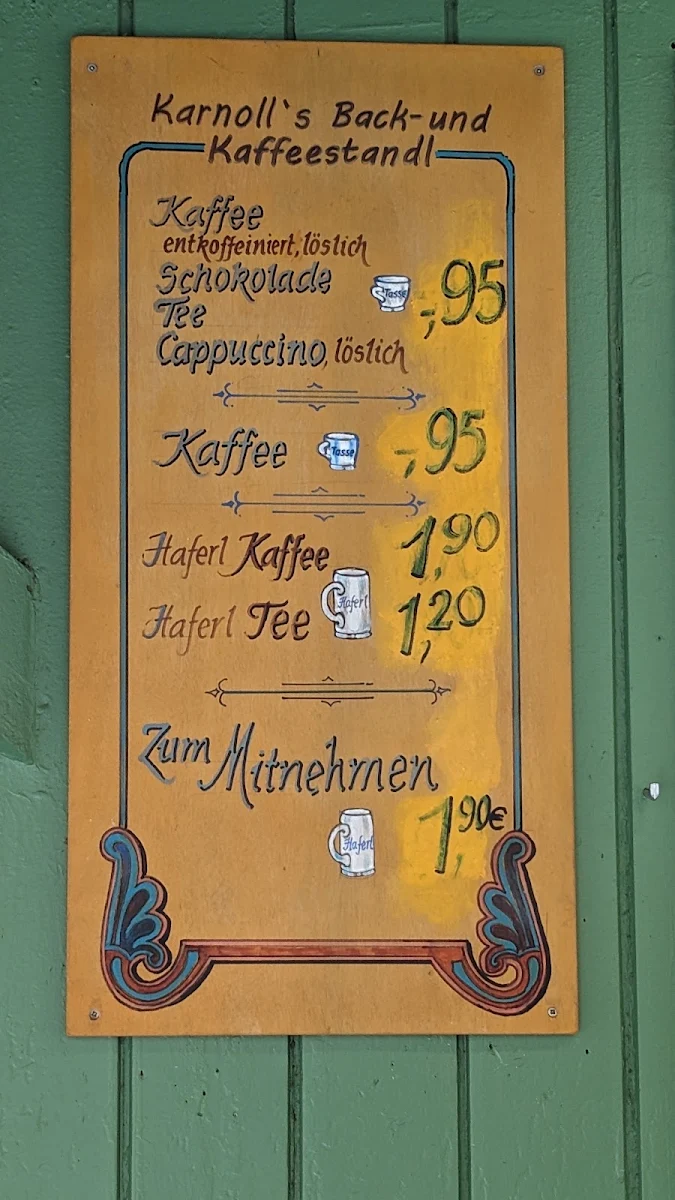 Karnoll`s Back-und
Kaffeestandl
Kaffee
entkoffeiniert, löslich
Schokolade
Tasse -,95
Tee
Cappuccino, löslich
Kaffee Tasse -,95
Haferl Kaffee 1,90
Haferl
Haferl Tee 1,20
Zum Mitnehmen
Haferl 1,90€